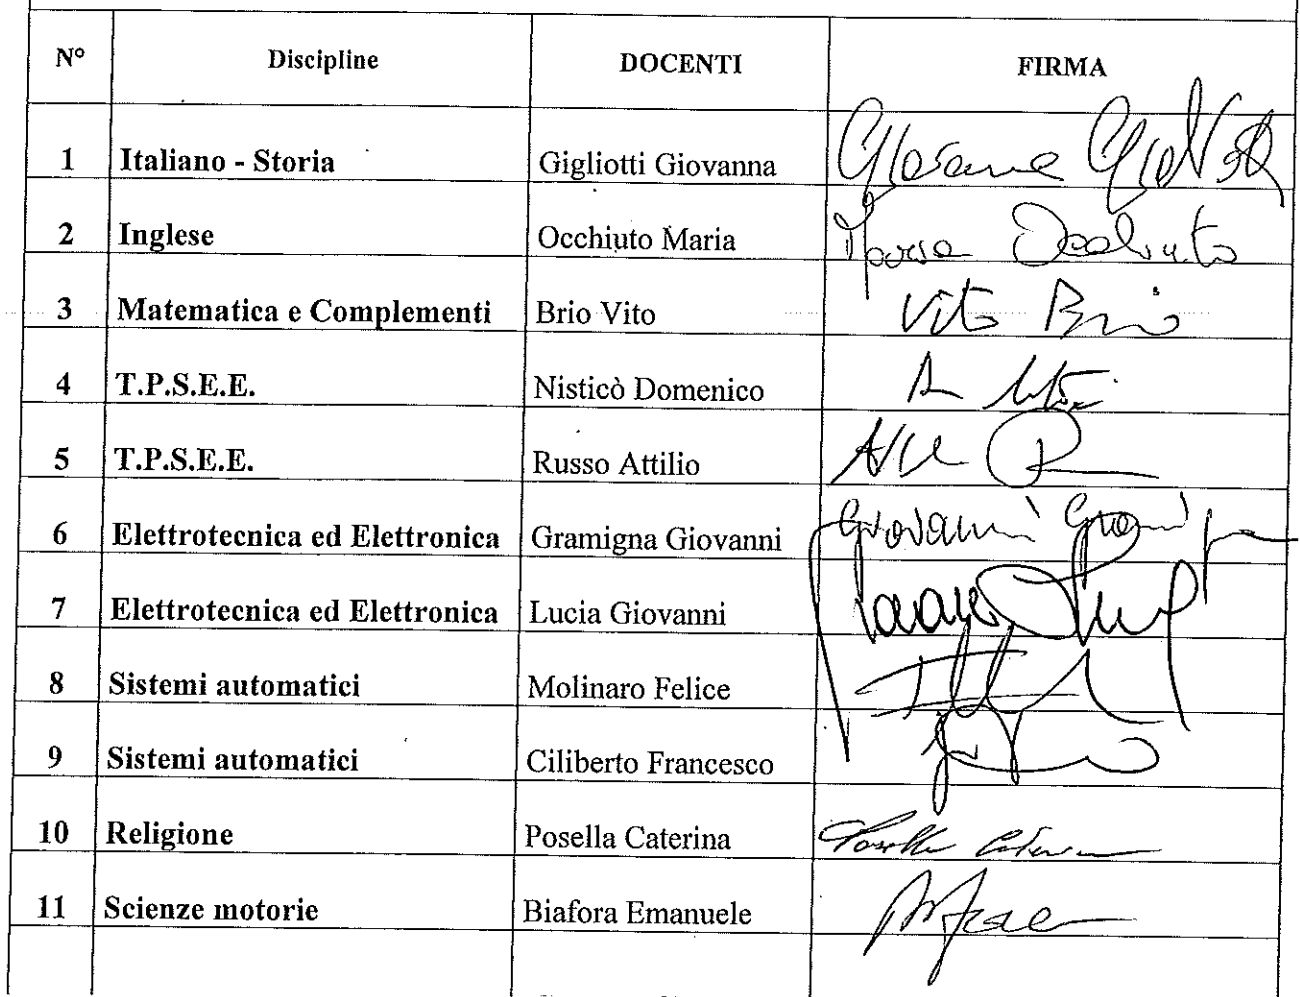 N° Discipline DOCENTI FIRMA
1 Italiano - Storia Gigliotti Giovanna
2 Inglese Occhiuto Maria Maria Occhiuto
3 Matematica e Complementi Brio Vito Vito Brio
4 T.P.S.E.E. Nisticò Domenico
5 T.P.S.E.E. Russo Attilio
6 Elettrotecnica ed Elettronica Gramigna Giovanni Giovanni
7 Elettrotecnica ed Elettronica Lucia Giovanni
8 Sistemi automatici Molinaro Felice
9 Sistemi automatici Ciliberto Francesco
10 Religione Posella Caterina Posella Caterina
11 Scienze motorie Biafora Emanuele